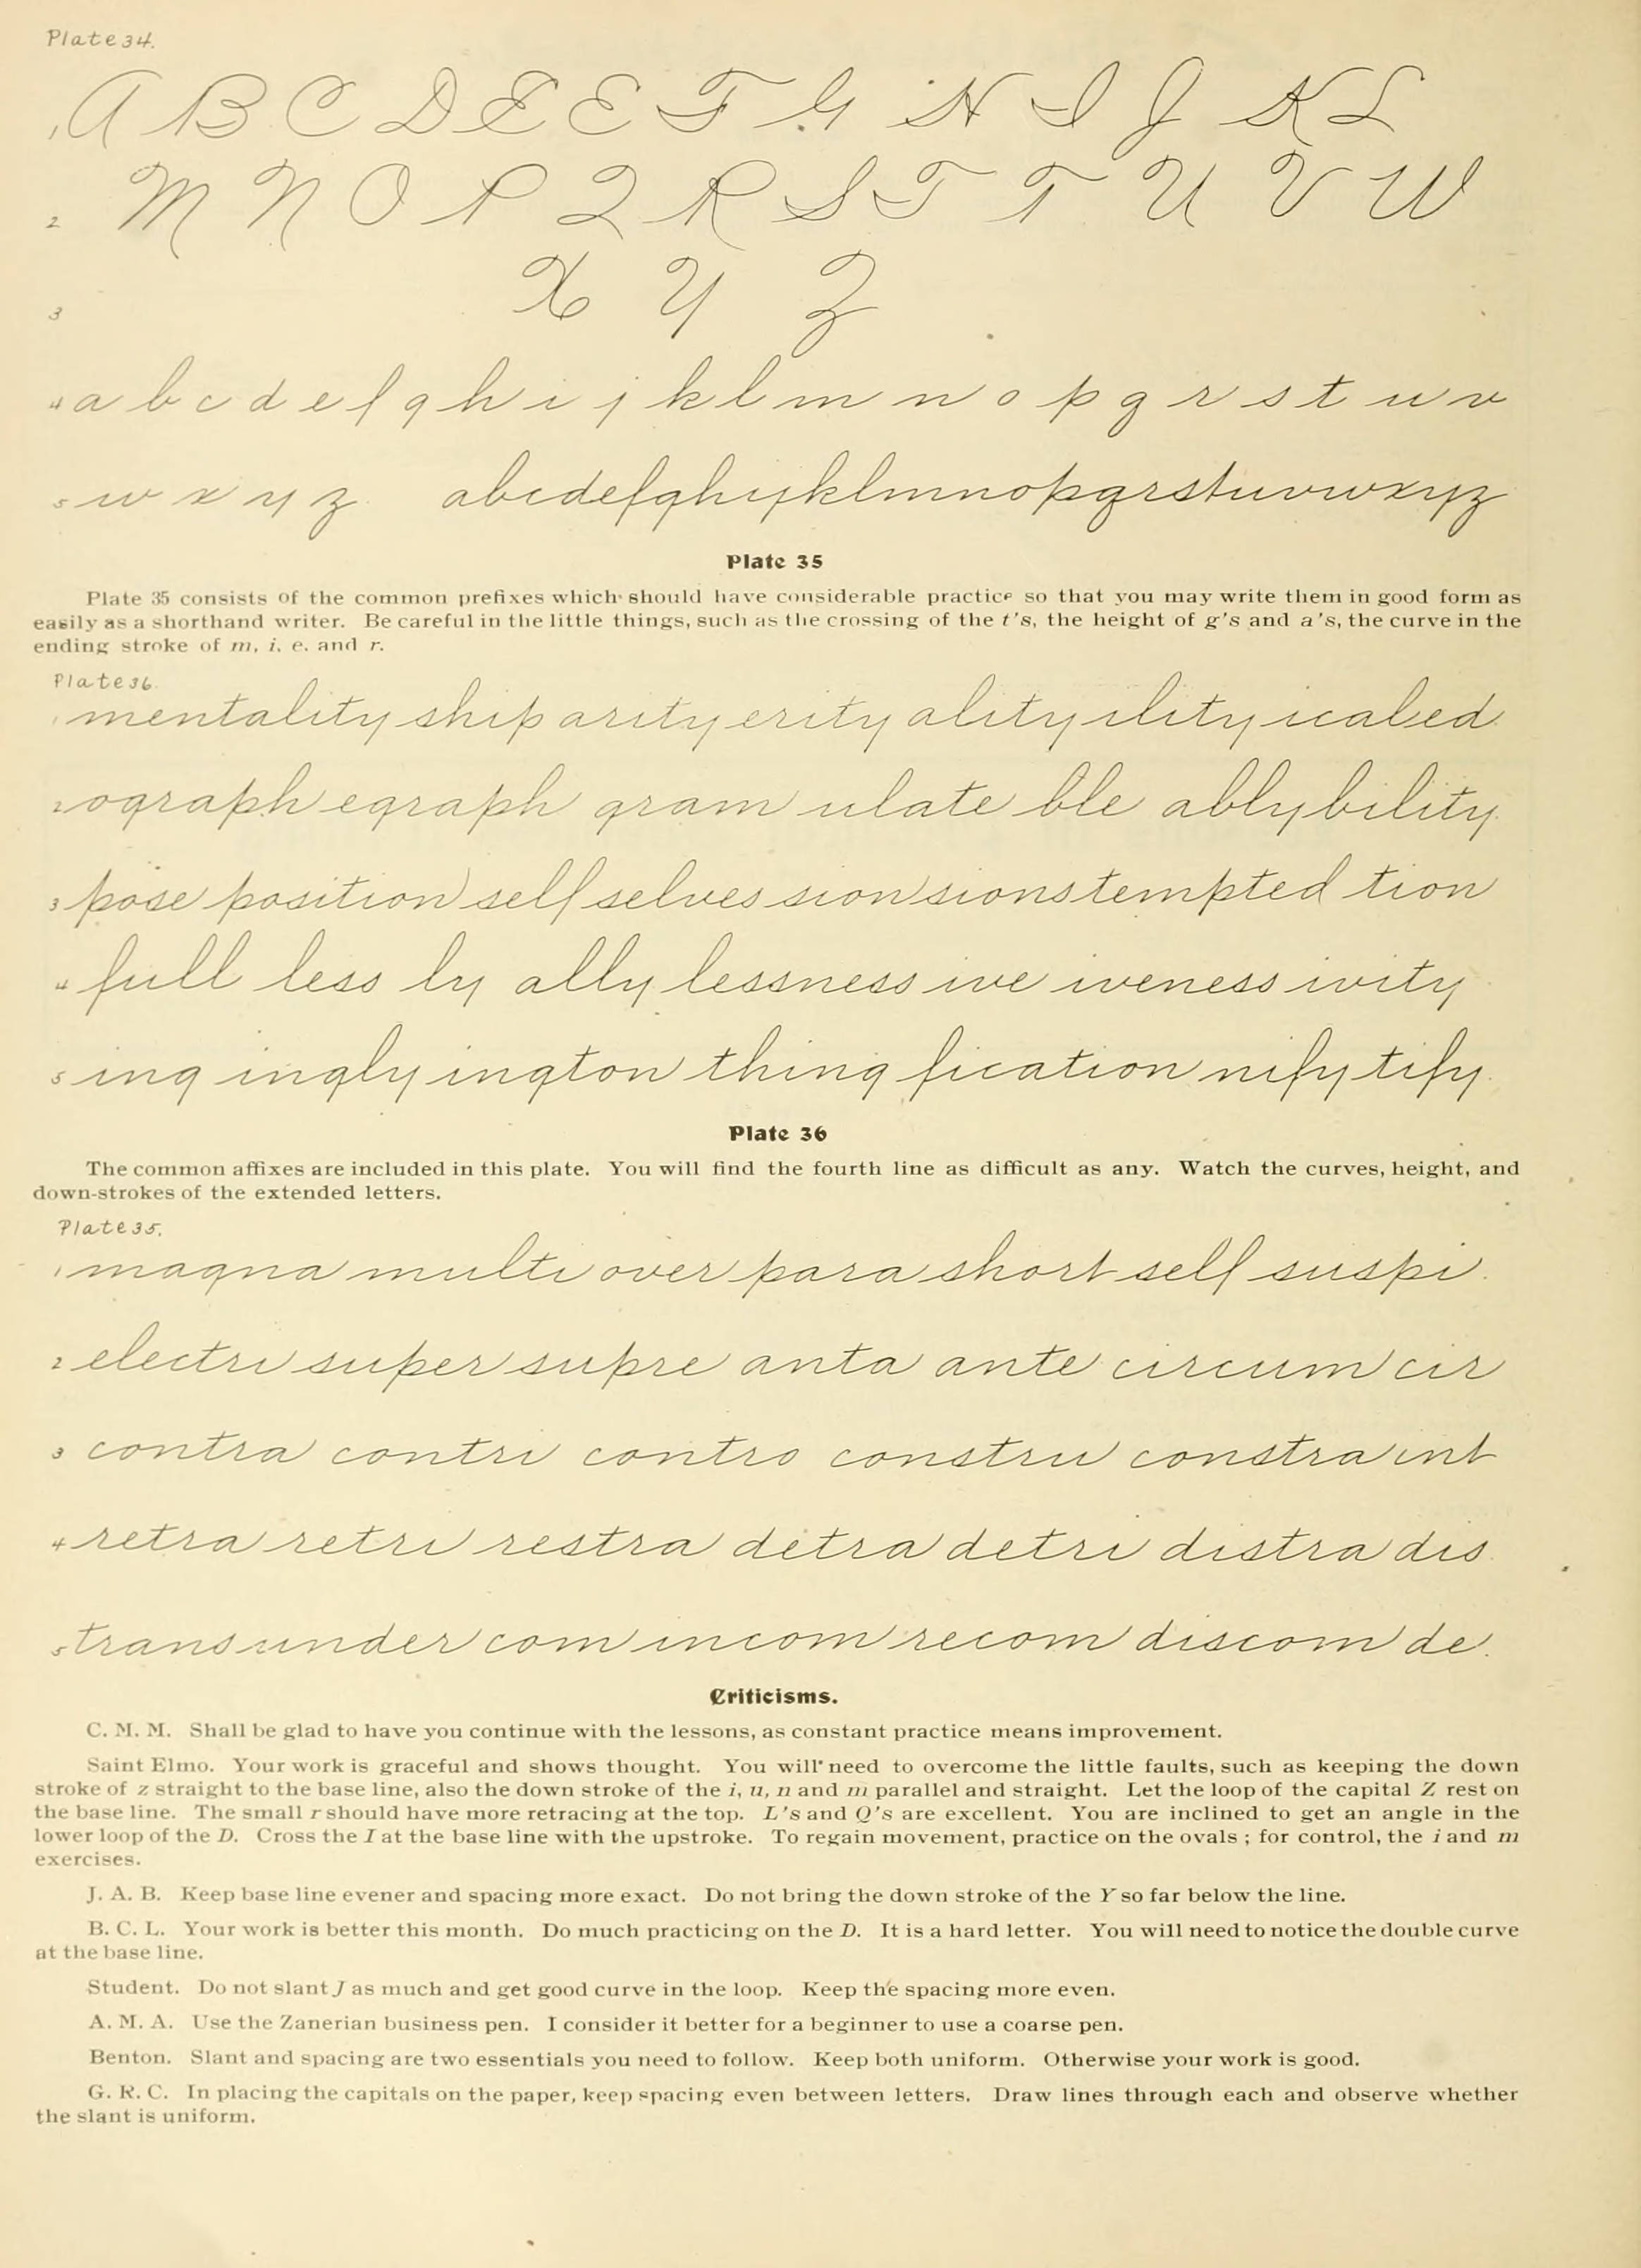 Plate 34.
1 A B C D E E F G H I J K L
2 M N O P Q R S T T U V W
3 X Y Z
4 a b c d e f g h i j k l m n o p q r s t u v
5 w x y z abcdefghijklmnopqrstuvwxyz
Plate 35
Plate 35 consists of the common prefixes which should have considerable practice so that you may write them in good form as
easily as a shorthand writer. Be careful in the little things, such as the crossing of the t's, the height of g's and a's, the curve in the
ending stroke of m, i, e. and r.
Plate 36.
1 mentality ship arity erity ality ility icaled
2 ograph egraph gram ulate ble ably bility
3 pose position self selves sion sions tempted tion
4 full less ly ally lessness ive iveness ivity
5 ing ingly ington thing fication nify tify.
Plate 36
The common affixes are included in this plate. You will find the fourth line as difficult as any. Watch the curves, height, and
down-strokes of the extended letters.
Plate 35.
1 magna multi over para short self suspi.
2 electri super supre anta ante circum cir
3 contra contri contro constru constraint
4 retra retri restra detra detri distra dis
5 trans under com incom recom discom de.
Criticisms.
C. M. M. Shall be glad to have you continue with the lessons, as constant practice means improvement.
Saint Elmo. Your work is graceful and shows thought. You will need to overcome the little faults, such as keeping the down
stroke of z straight to the base line, also the down stroke of the i, u, n and m parallel and straight. Let the loop of the capital Z rest on
the base line. The small r should have more retracing at the top. L's and Q's are excellent. You are inclined to get an angle in the
lower loop of the D. Cross the I at the base line with the upstroke. To regain movement, practice on the ovals; for control, the i and m
exercises.
J. A. B. Keep base line evener and spacing more exact. Do not bring the down stroke of the Y so far below the line.
B. C. L. Your work is better this month. Do much practicing on the D. It is a hard letter. You will need to notice the double curve
at the base line.
Student. Do not slant J as much and get good curve in the loop. Keep the spacing more even.
A. M. A. Use the Zanerian business pen. I consider it better for a beginner to use a coarse pen.
Benton. Slant and spacing are two essentials you need to follow. Keep both uniform. Otherwise your work is good.
G. R. C. In placing the capitals on the paper, keep spacing even between letters. Draw lines through each and observe whether
the slant is uniform.